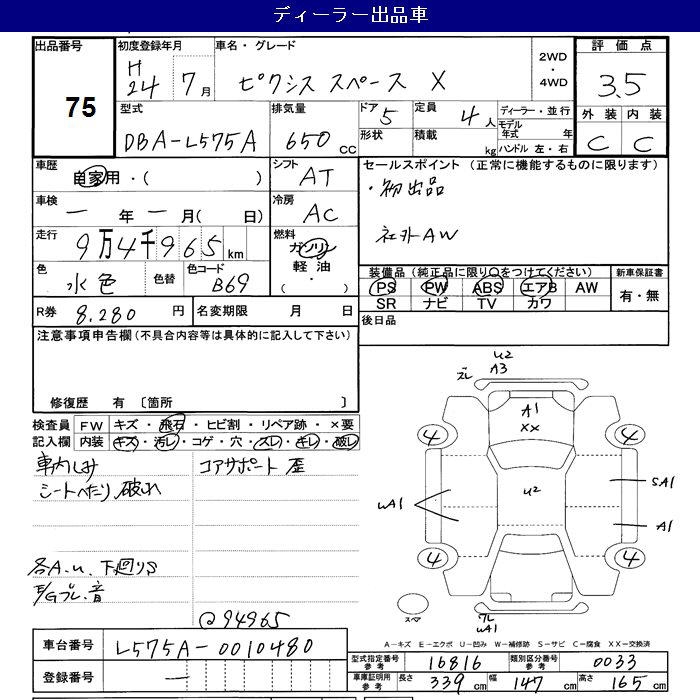 ディーラー出品車
出品番号 75
初度登録年月 H24 7月
車名・グレード ピクシス スペース X
2WD ・ 4WD
評価点 3.5
外装 内装
C C
型式 DBA-L575A
排気量 650 cc
ドア 5
形状
定員 4人
積載 kg
ディーラー・並行
モデル年式 年
ハンドル 左・右
車歴 自家用・( )
シフト AT
車検 一年一月( 日)
冷房 AC
走行 9万4千965km
燃料 ガソリン 軽油 ( ・ )
色 水色 色替
色コード B69
R券 8,280円
名変期限 月 日
セールスポイント (正常に機能するものに限ります)
・初出品
社外AW
装備品(純正品に限り○をつけてください)
PS PW ABS エアB AW
SR ナビ TV カワ
新車保証書
有・無
後日品
注意事項申告欄(不具合内容等は具体的に記入して下さい)
修復歴 有 〔箇所 〕
検査員 FW キズ・飛石・ヒビ割・リペア跡・×要
記入欄 内装 キズ・汚レ・コゲ・穴・スレ・キレ・破レ
車内しみ
シートへたり、破れ
コアサポート 歪
各A.u、下廻りS
E/Gブレ、音
@94965
ズレ
u2
A3
A1
XX
4
4
u2
uA1
SA1
A1
4
4
スペア
ワレ
uA1
A-キズ E-エクボ U-凹み W-補修跡 S-サビ C-腐食 XX-交換済
車台番号 L575A-0010480
登録番号 一
型式指定番号 参考 16816
類別区分番号 参考 0033
車庫証明用 参考 長さ 339cm 幅 147cm 高さ 165cm